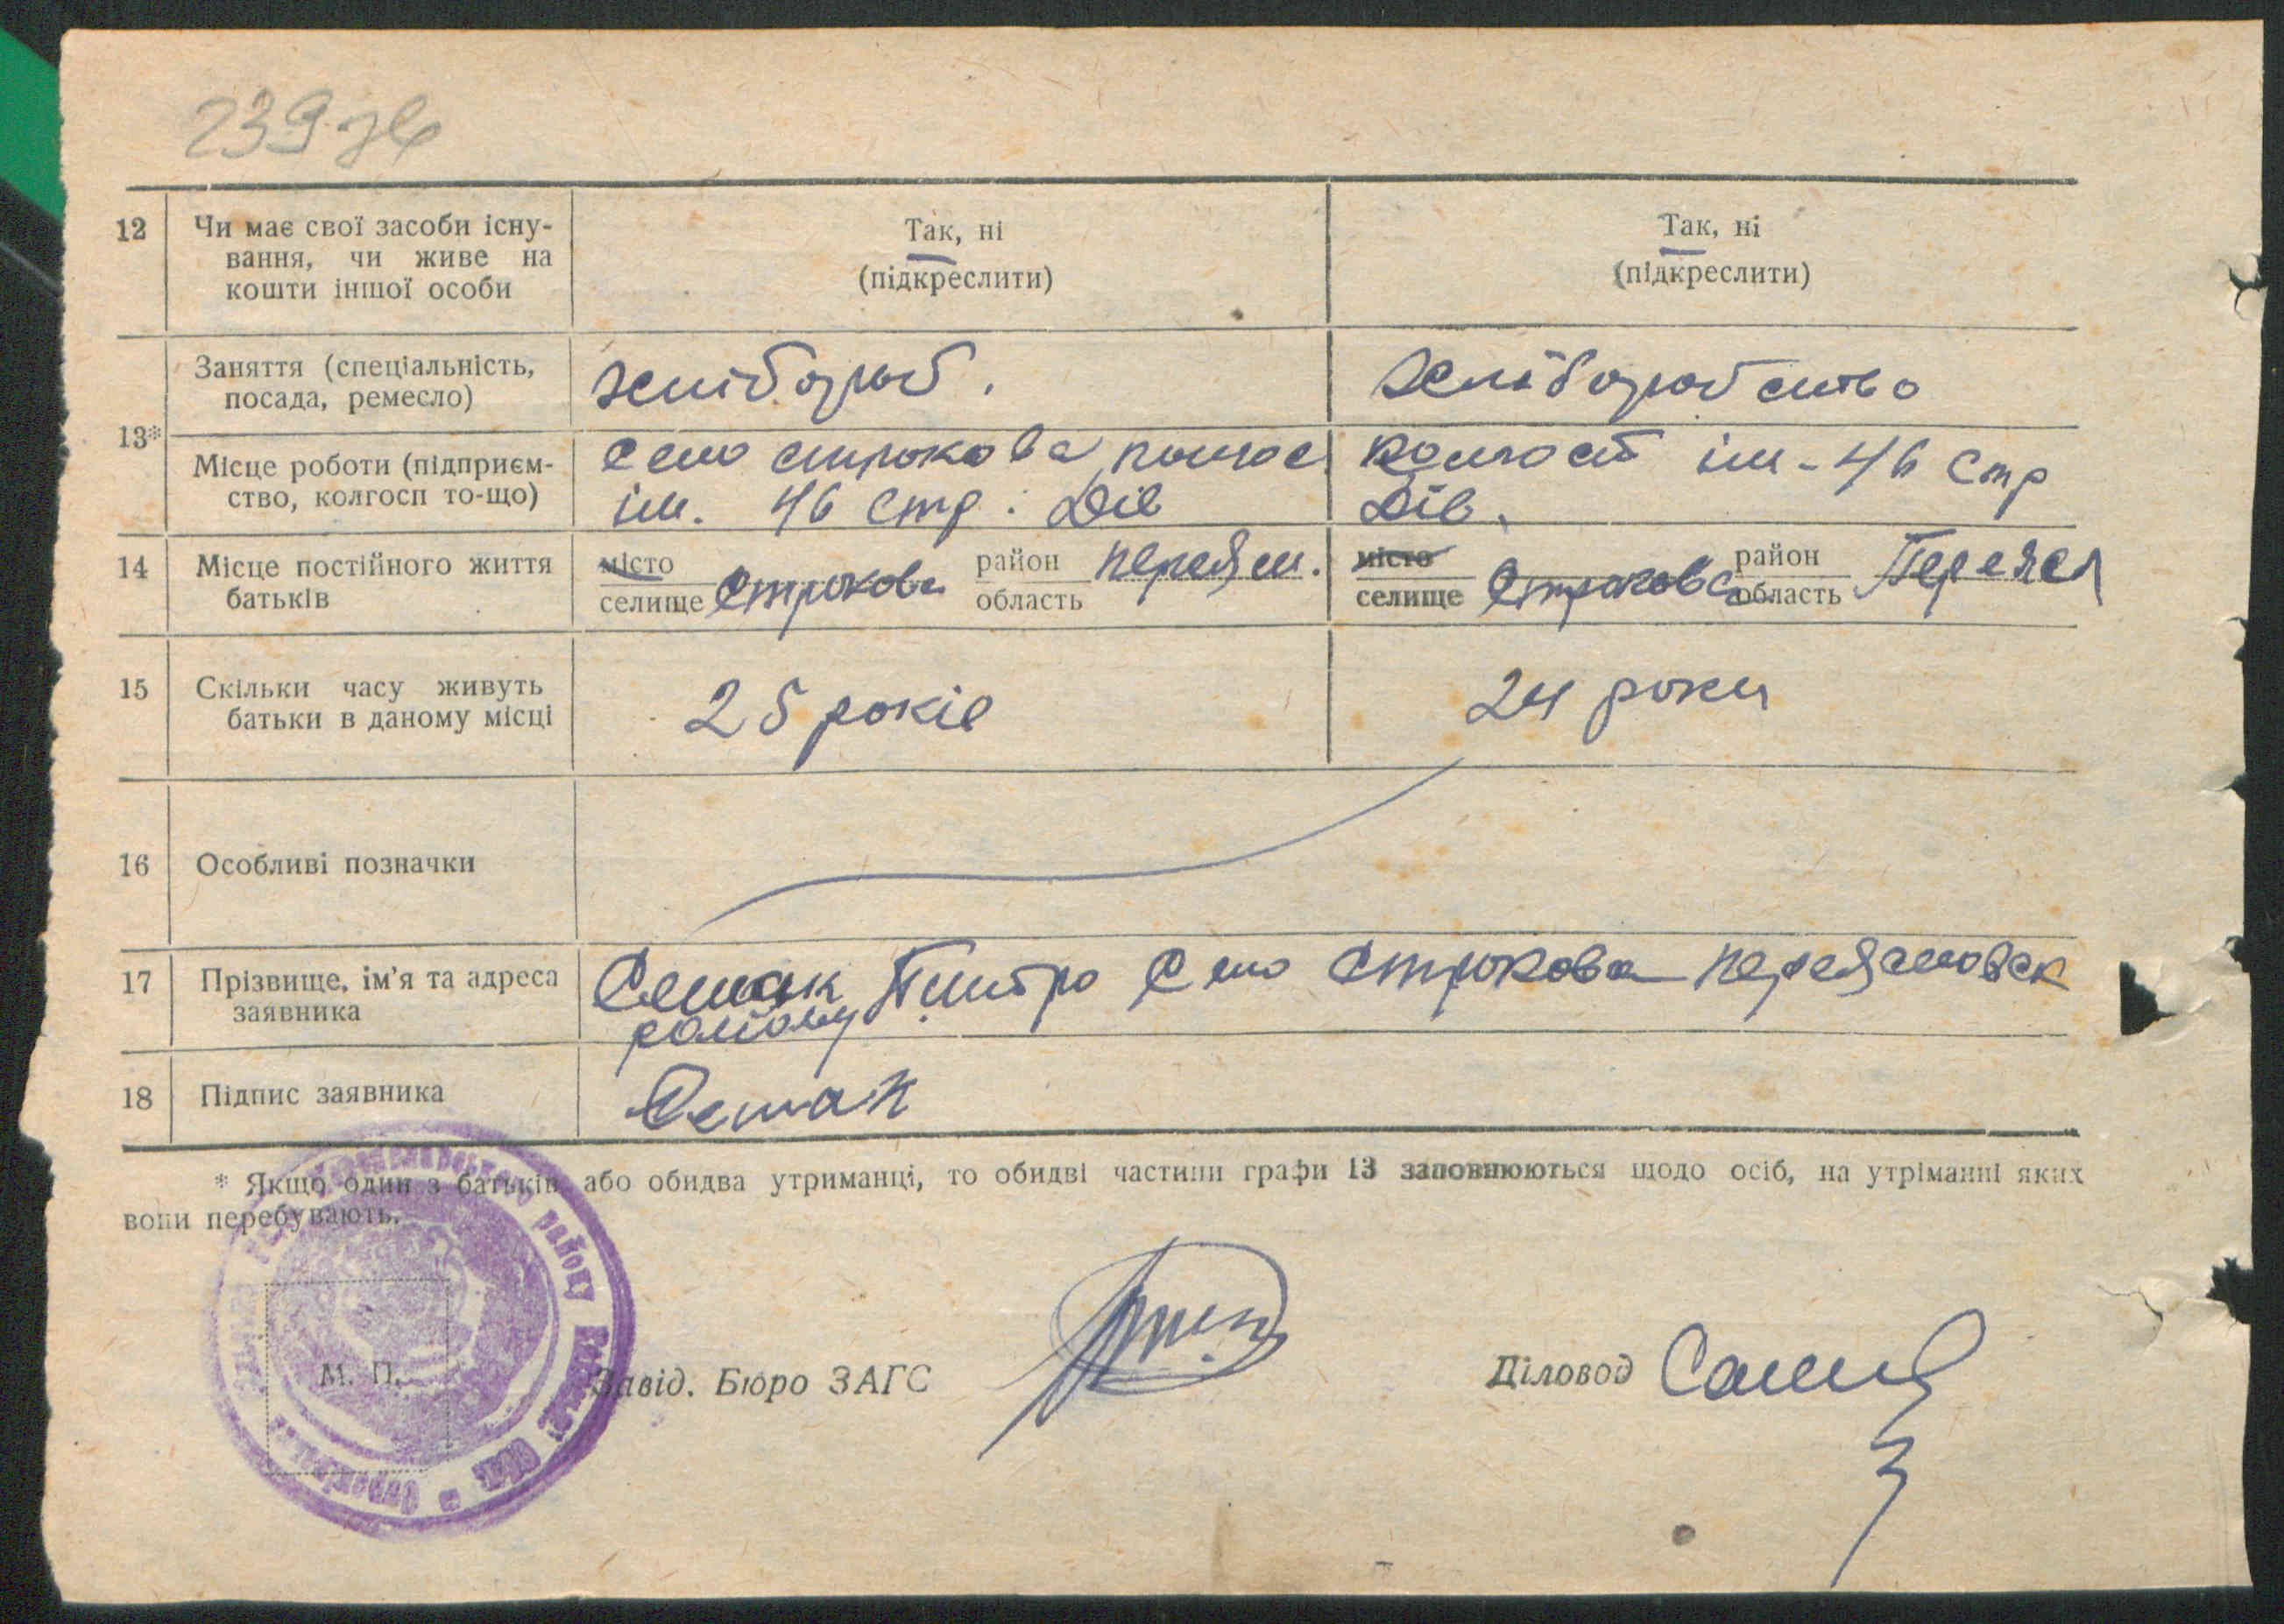 239 зв
12 Чи має свої засоби існу- Так, ні Так, ні
вання, чи живе на (підкреслити) (підкреслити)
кошти іншої особи
Заняття (спеціальність, хлібороб. хліборобство
посада, ремесло)
13*
Місце роботи (підприєм- село строкова колгос колгосп ім. 46 стр
ство, колгосп то-що) ім. 46 стр. Див Див.
14 Місце постійного життя місто район Переясл. місто район Переясл
батьків селище Строкова область селище Строкова область
15 Скільки часу живуть 25 років 24 роки
батьки в даному місці
16 Особливі позначки
17 Прізвище, ім'я та адреса Семак Дмитро село Строкова Переясловск
заявника району
18 Підпис заявника Семак
* Якщо один з батьків або обидва утриманці, то обидві частини графи 13 заповнюються щодо осіб, на утріманні яких
вони перебувають.
району
М. П. Завід. Бюро ЗАГС Діловод